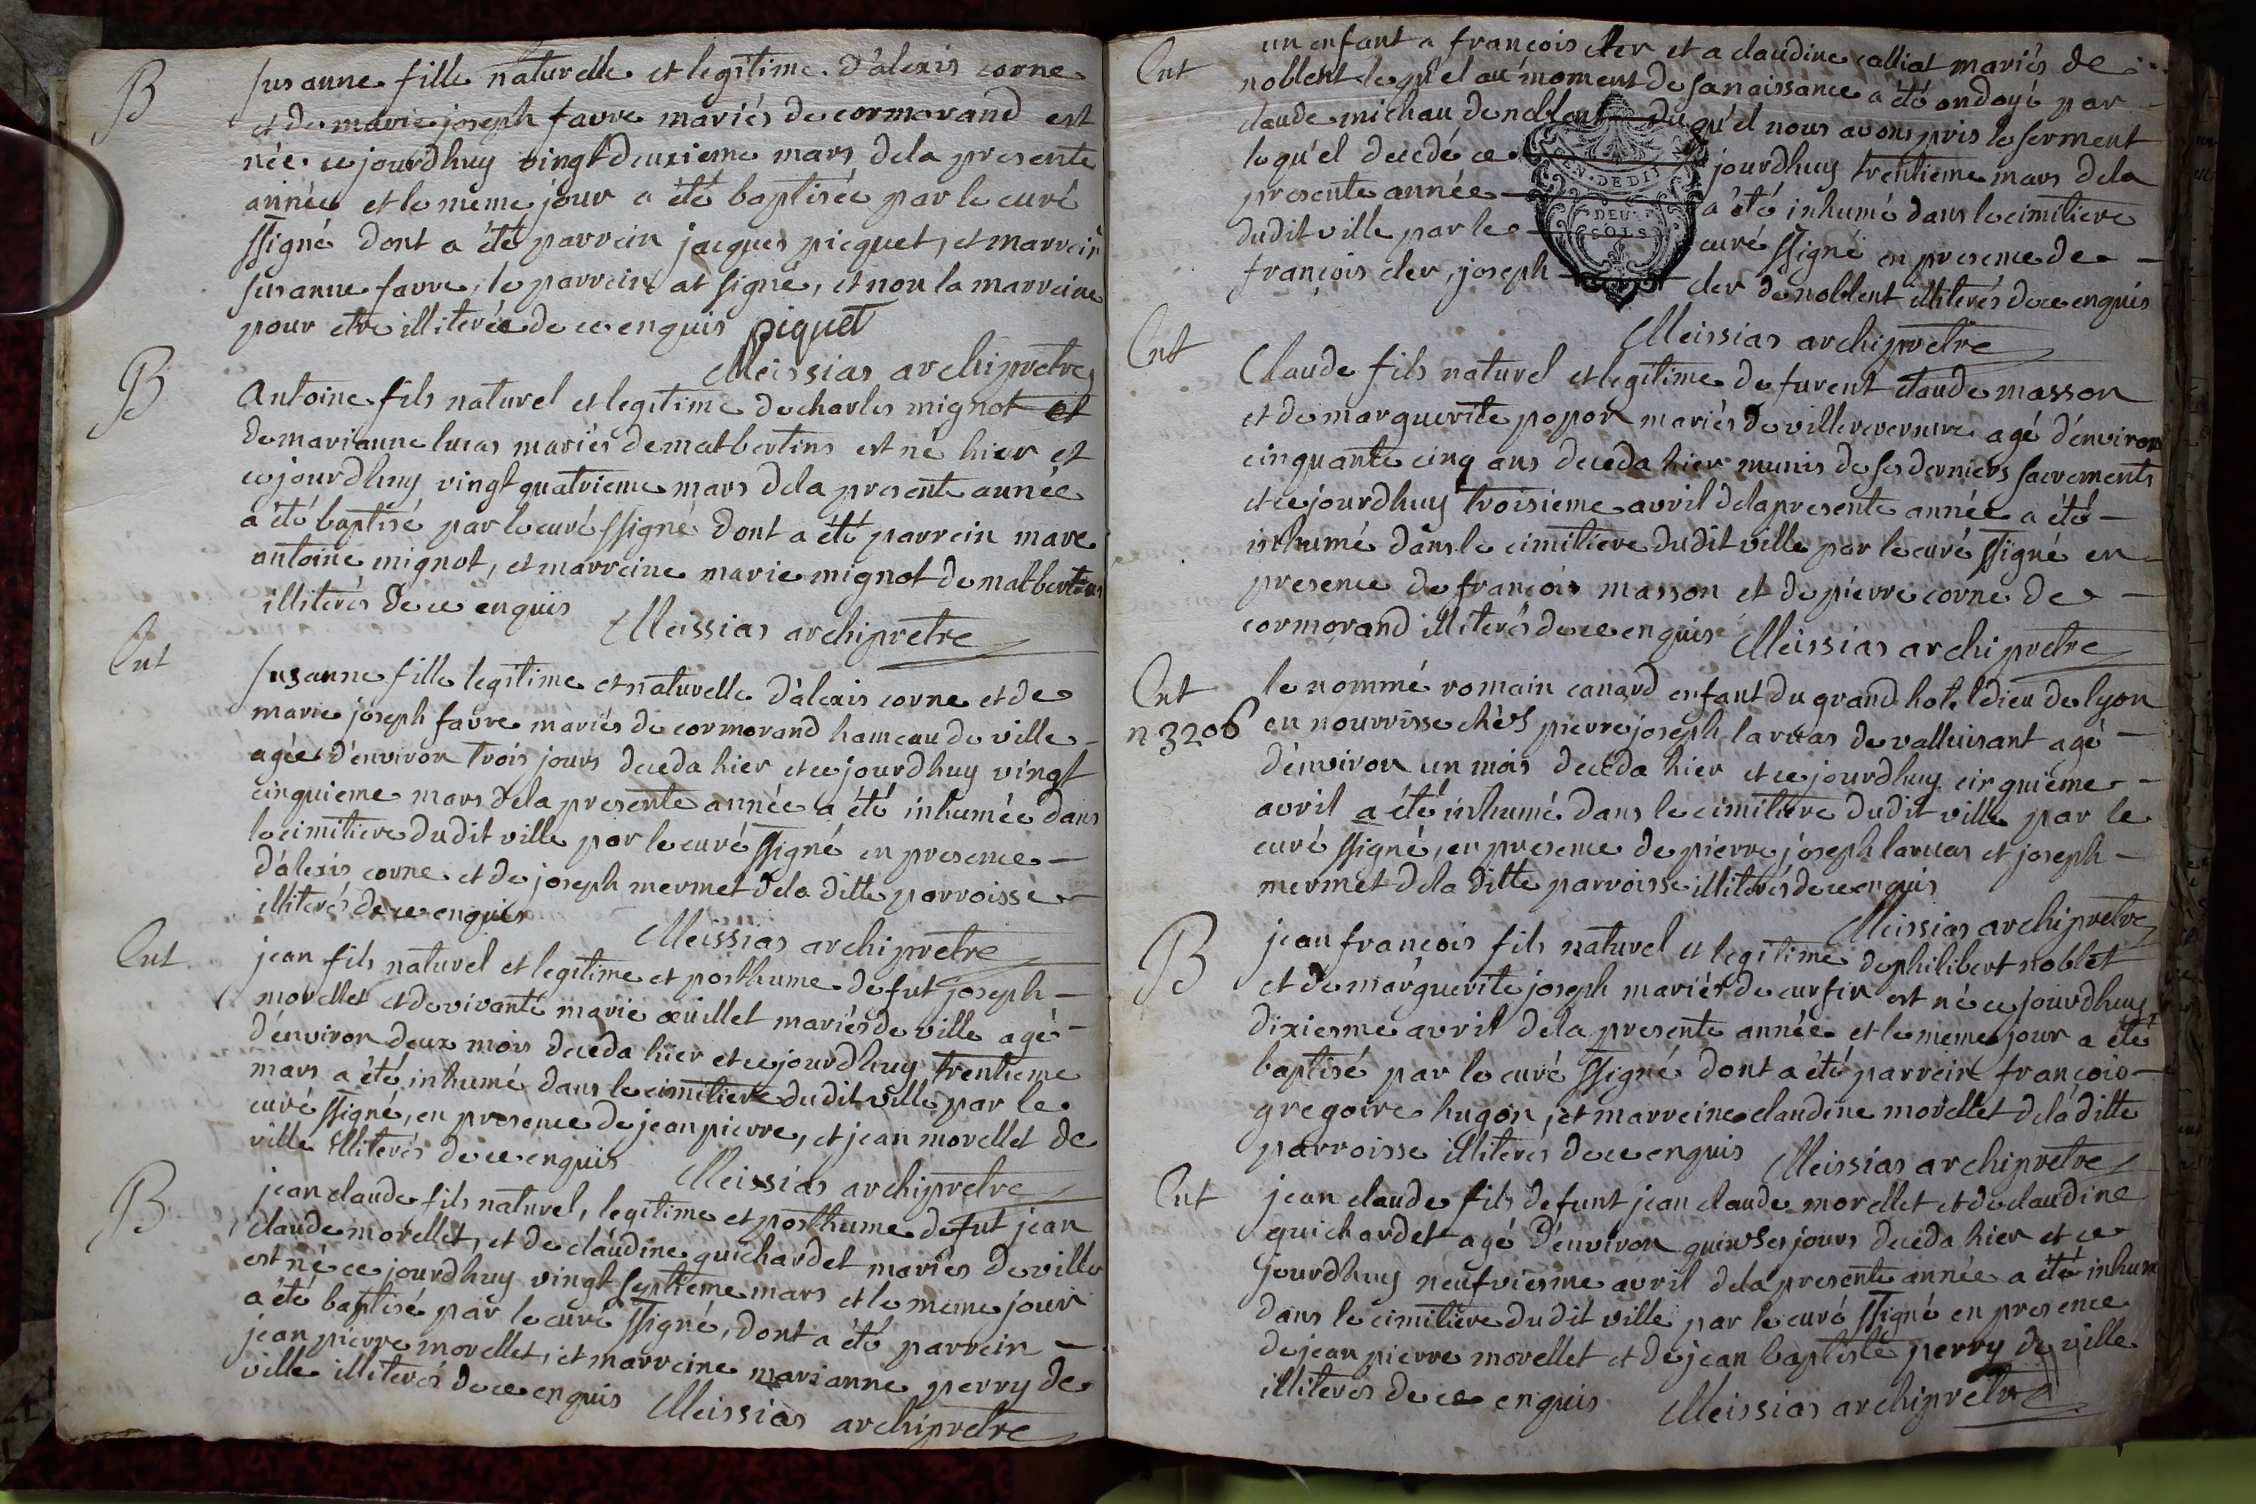 B
susanne fille naturelle et legitime d'alexis corne
et de marie joseph favre mariés de cormorand est
née ce jourdhuy vingt deuxieme mars dela presente
année et le meme jour a été baptisée par le curé
ssigné dont a été parrein jacques picquet, et marrein
susanne favre, le parrein at signé, et non la marreine
pour etre illiterée de ce enquis piquet
Meissias archipretre
B
antoine fils naturel et legitime de charles mignot et
de marianne lucas mariés de matbertins est né hier et
cejourdhuy vingt quatrieme mars dela presente année
a été baptisé par le curé ssigné dont a été parrein marc
antoine mignot, et marreine marie mignot de matbertins
illiterés de ce enquis
Meissias archipretre
Ent
susanne fille legitime et naturelle d'alexis corne et de
marie joseph favre mariés de cormorand hameau de ville
agée d'environ trois jours deceda hier et ce jourdhuy vingt
cinquieme mars dela presente année a été inhumée dans
le cimitiere dudit ville par le curé ssigné en presence
d'alexis corne et de joseph mermet dela ditte parroisse
illiterés de ce enquis
Meissias archipretre
Ent
jean fils naturel et legitime et posthume de fut joseph
morellet et de vivante marie œuillet mariés de ville agé
d'environ deux mois deceda hier et ce jourdhuy trentieme
mars a été inhumé dans le cimitiere dudit ville par le
curé ssigné, en presence de jean pierre, et jean morellet de
ville illiterés de ce enquis
Meissias archipretre
B
jean claude fils naturel, legitime et posthume de fut jean
claude morellet, et de claudine guichardet mariés de ville
est né ce jourdhuy vingt septieme mars et le meme jour
a été baptisé par le curé ssigné, dont a été parrein
jean pierre morellet, et marreine marianne perry de
ville illiterés de ce enquis
Meissias archipretre
Ent
un enfant a françois cler et a claudine calliat mariés de
noblent lequ'el au moment de sa naissance a été ondoyé par
claude michau de noblent duqu'el nous avons pris le serment
lequ'el decedé ce jourdhuy trentieme mars dela
presente année a été inhumé dans le cimitiere
dudit ville par le curé ssigné en presence de
françois cler, joseph cler de noblent illiterés de ce enquis
EN. DE DIJ
DEUX
SOLS
Meissias archipretre
Ent
Claude fils naturel et legitime de furent claude masson
et de marguerite popon mariés de villereversure agé d'environ
cinquante cinq ans deceda hier munis de ses derniers sacrements
et ce jourdhuy troisieme avril dela presente année a été
inhumé dans le cimitiere dudit ville par le curé ssigné en
presence de françois masson et de pierre corne de
cormorand illiterés de ce enquis
Meissias archipretre
Ent
n 3206
le nommé romain canard enfant du grand hotel dieu de lyon
en nourrisse chés pierre joseph laruas de valluisant agé
d'environ un mois deceda hier et ce jourdhuy cinquieme
avril a été inhumé dans le cimitiere dudit ville par le
curé ssigné, en presence de pierre joseph laruas et joseph
mermet dela ditte parroisse illiterés de ce enquis
Meissias archipretre
B
jean françois fils naturel et legitime de philibert noblet
et de marguerite joseph mariés de curfin est né ce jourdhuy
dixiesme avril dela presente année et le meme jour a été
baptisé par le curé ssigné dont a été parrein françois
gregoire hugon, et marreine claudine morellet dela ditte
parroisse illiterés de ce enquis
Meissias archipretre
Ent
jean claude fils de funt jean claude morellet et de claudine
guichardet agé d'environ quinses jours deceda hier et ce
jourdhuy neufviesme avril dela presente année a été inhum
dans le cimitiere dudit ville par le curé ssigné en presence
de jean pierre morellet et de jean baptiste perry de ville
illiterés de ce enquis
Meissias archipretre